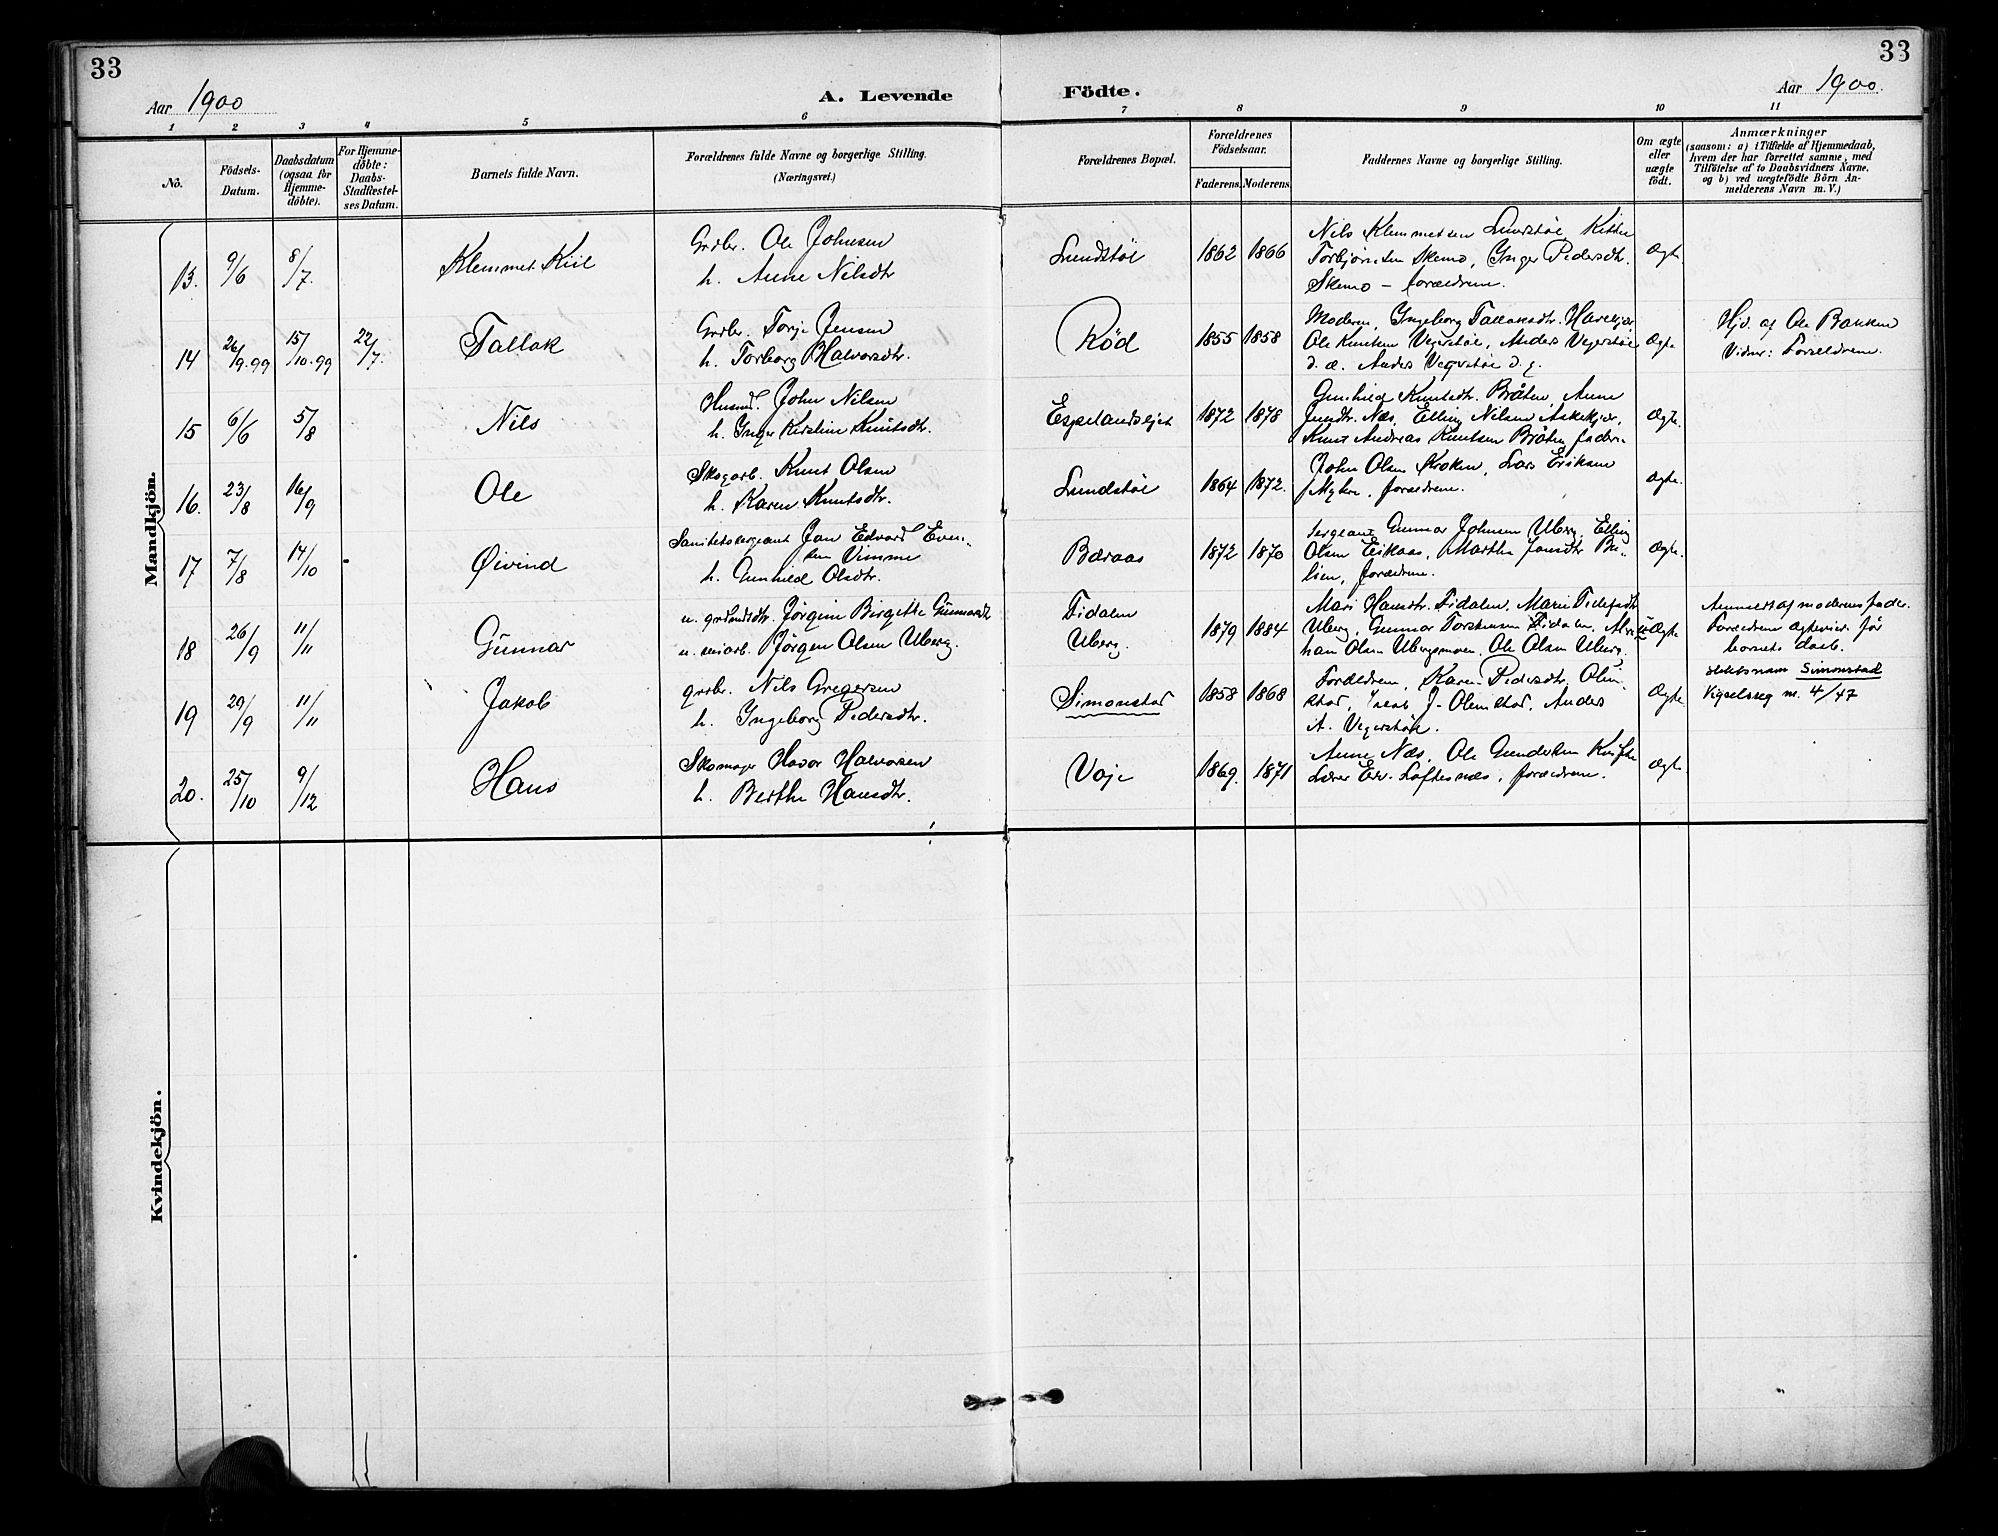 33
33
Aar 1900
A. Levende Födte.
Aar 1900.
1 2 3 4 5 6 7 8 9 10 11
No.
Födsels-
Datum.
Daabsdatum
(ogsaa for
Hjemme-
döbte).
For Hjemme-
döbte:
Daabs-
Stadfestel-
ses Datum.
Barnets fulde Navn.
Forældrenes fulde Navne og borgerlige Stilling.
(Næringsvei.)
Forældrenes Bopæl.
Forældrenes
Födselsaar.
Faderens. Moderens.
Faddernes Navne og borgerlige Stilling.
Om ægte
eller
uægte
födt.
Anmærkninger
(saasom: a) i Tilfælde af Hjemmedaab,
hvem der har forrettet samme, med
Tilföielse af to Daabsvidners Navne,
og b) ved uægtefödte Börn An-
melderens Navn m. V.)
Mandkjön.
13. 9/6 8/7. Klemmet Kiil
Grdbr. Ole Johnsen
h. Anne Nilsdtr
Lundstøl 1862 1866
Nils Klemmetsen Lundstøl
Torbjørnsen Skemo, Inger Pedersdtr.
Skemo – forældrene.
Ægte.
14 26/9.99 15/10.99 22/7. Tallak
Grdbr. Torje Jensen
h. Torborg Halvorsdtr.
Rød 1855 1858
Moderen, Ingeborg Tallaksdtr.
Ole Knutsen Vegerstøl, Anders Vegerstøl
d. æ. Anders Vegerstøl d. y.
Ægte
Hjd. af Ole Bakken
Vidner: Forældrene.
15 6/6 5/8 Nils
Husmd. John Nilsen
h. Inger Kirstine Knutsdtr.
Espelandslejet 1872 1878
Gunhild Knutsdtr. Bråten, Anne
Jensdtr. Næs, Elling Nilsen Askekjær,
Knut Andreas Knutsen Bråten
Ægte.
16. 23/8 16/9 Ole
Skogarb. Knut Olsen
h. Karen Knutsdtr.
Lundstøl 1864 1872.
John Olsen Kroken, Lars Eriksen
Myhre, forældrene.
Ægte.
17 7/8 14/10 Øivind
Sanitetssergeant Jan Edvard Even-
sen Vimme
h. Gunhild Olsdtr.
Baraas 1872 1870
Sergeant Gunnar Johnsen Uberg, Elling
Olsen Eikaas, Marthe Jonsdtr
lien, forældrene.
Ægte.
18 26/9 11/11 Gunnar
u. Jørgine Birgitte Gunnarsdtr
u. Jørgen Olsen Uberg.
Fidalen
Uberg. 1879 1884
Mari Hansdtr. Fidalen, Marie
Uberg, Gunnar Torstensen Fidalen,
Olsen Ubergsmoen, Ole Olsen Uberg.
Ægte
Anmeldt af moderens fader.
Forældrene ægteviet før
barnets daab.
19 29/9 11/11 Jakob
grdbr. Nils Gregersen
h. Ingeborg Pedersdtr.
Simonstad 1858 1868
Forældrene, Karen Pedersdtr. Olim-
stad, Jacob J. Olimstad, Anders
A. Vegerstøl.
Ægte.
Slektsnavn Simonstad
Vigselsreg m. 4/47
20. 25/10 9/12 Hans
Skomager Havor Halvorsen
h. Berthe Hansdtr.
Voje 1869. 1871
Anne Næs, Ole Gundersen
Lærer Edv. Loftesnæs, forældrene.
Ægte.
Kvindekjön.